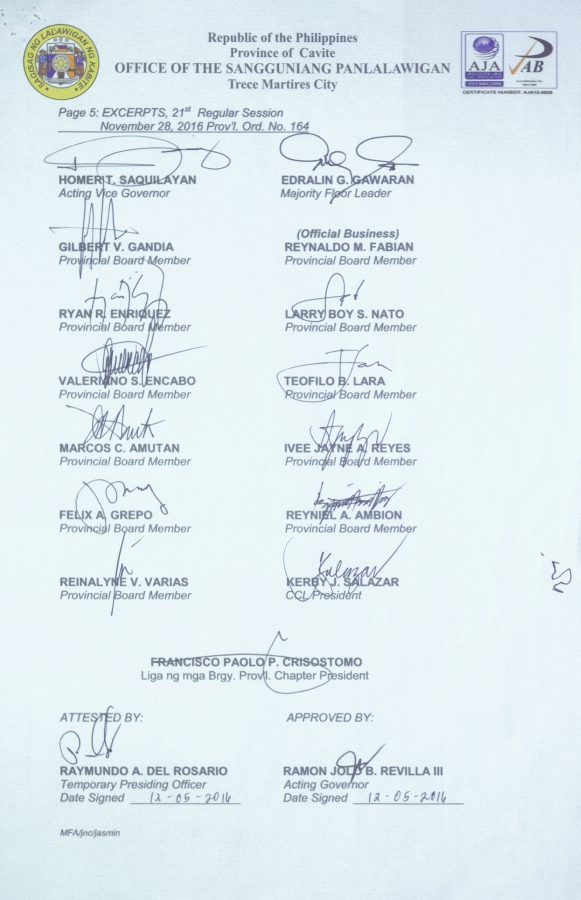 SAGISAG NG LALAWIGAN NG KABITE
Republic of the Philippines
Province of Cavite
OFFICE OF THE SANGGUNIANG PANLALAWIGAN
Trece Martires City
AJA
PAB
CERTIFICATE NUMBER: AJA12-0009
Page 5: EXCERPTS, 21st Regular Session
November 28, 2016 Prov'l. Ord. No. 164
HOMER T. SAQUILAYAN
Acting Vice Governor
EDRALIN G. GAWARAN
Majority Floor Leader
GILBERT V. GANDIA
Provincial Board Member
(Official Business)
REYNALDO M. FABIAN
Provincial Board Member
RYAN R. ENRIQUEZ
Provincial Board Member
LARRY BOY S. NATO
Provincial Board Member
VALERIANO S. ENCABO
Provincial Board Member
TEOFILO B. LARA
Provincial Board Member
MARCOS C. AMUTAN
Provincial Board Member
IVEE JAYNE A. REYES
Provincial Board Member
FELIX A. GREPO
Provincial Board Member
REYNIEL A. AMBION
Provincial Board Member
REINALYNE V. VARIAS
Provincial Board Member
Salazar
KERBY J. SALAZAR
CCL President
FRANCISCO PAOLO P. CRISOSTOMO
Liga ng mga Brgy. Prov'l. Chapter President
ATTESTED BY:
RAYMUNDO A. DEL ROSARIO
Temporary Presiding Officer
Date Signed 12-05-2016
APPROVED BY:
RAMON JOLO B. REVILLA III
Acting Governor
Date Signed 12-05-2016
MFA/jnc/jasmin